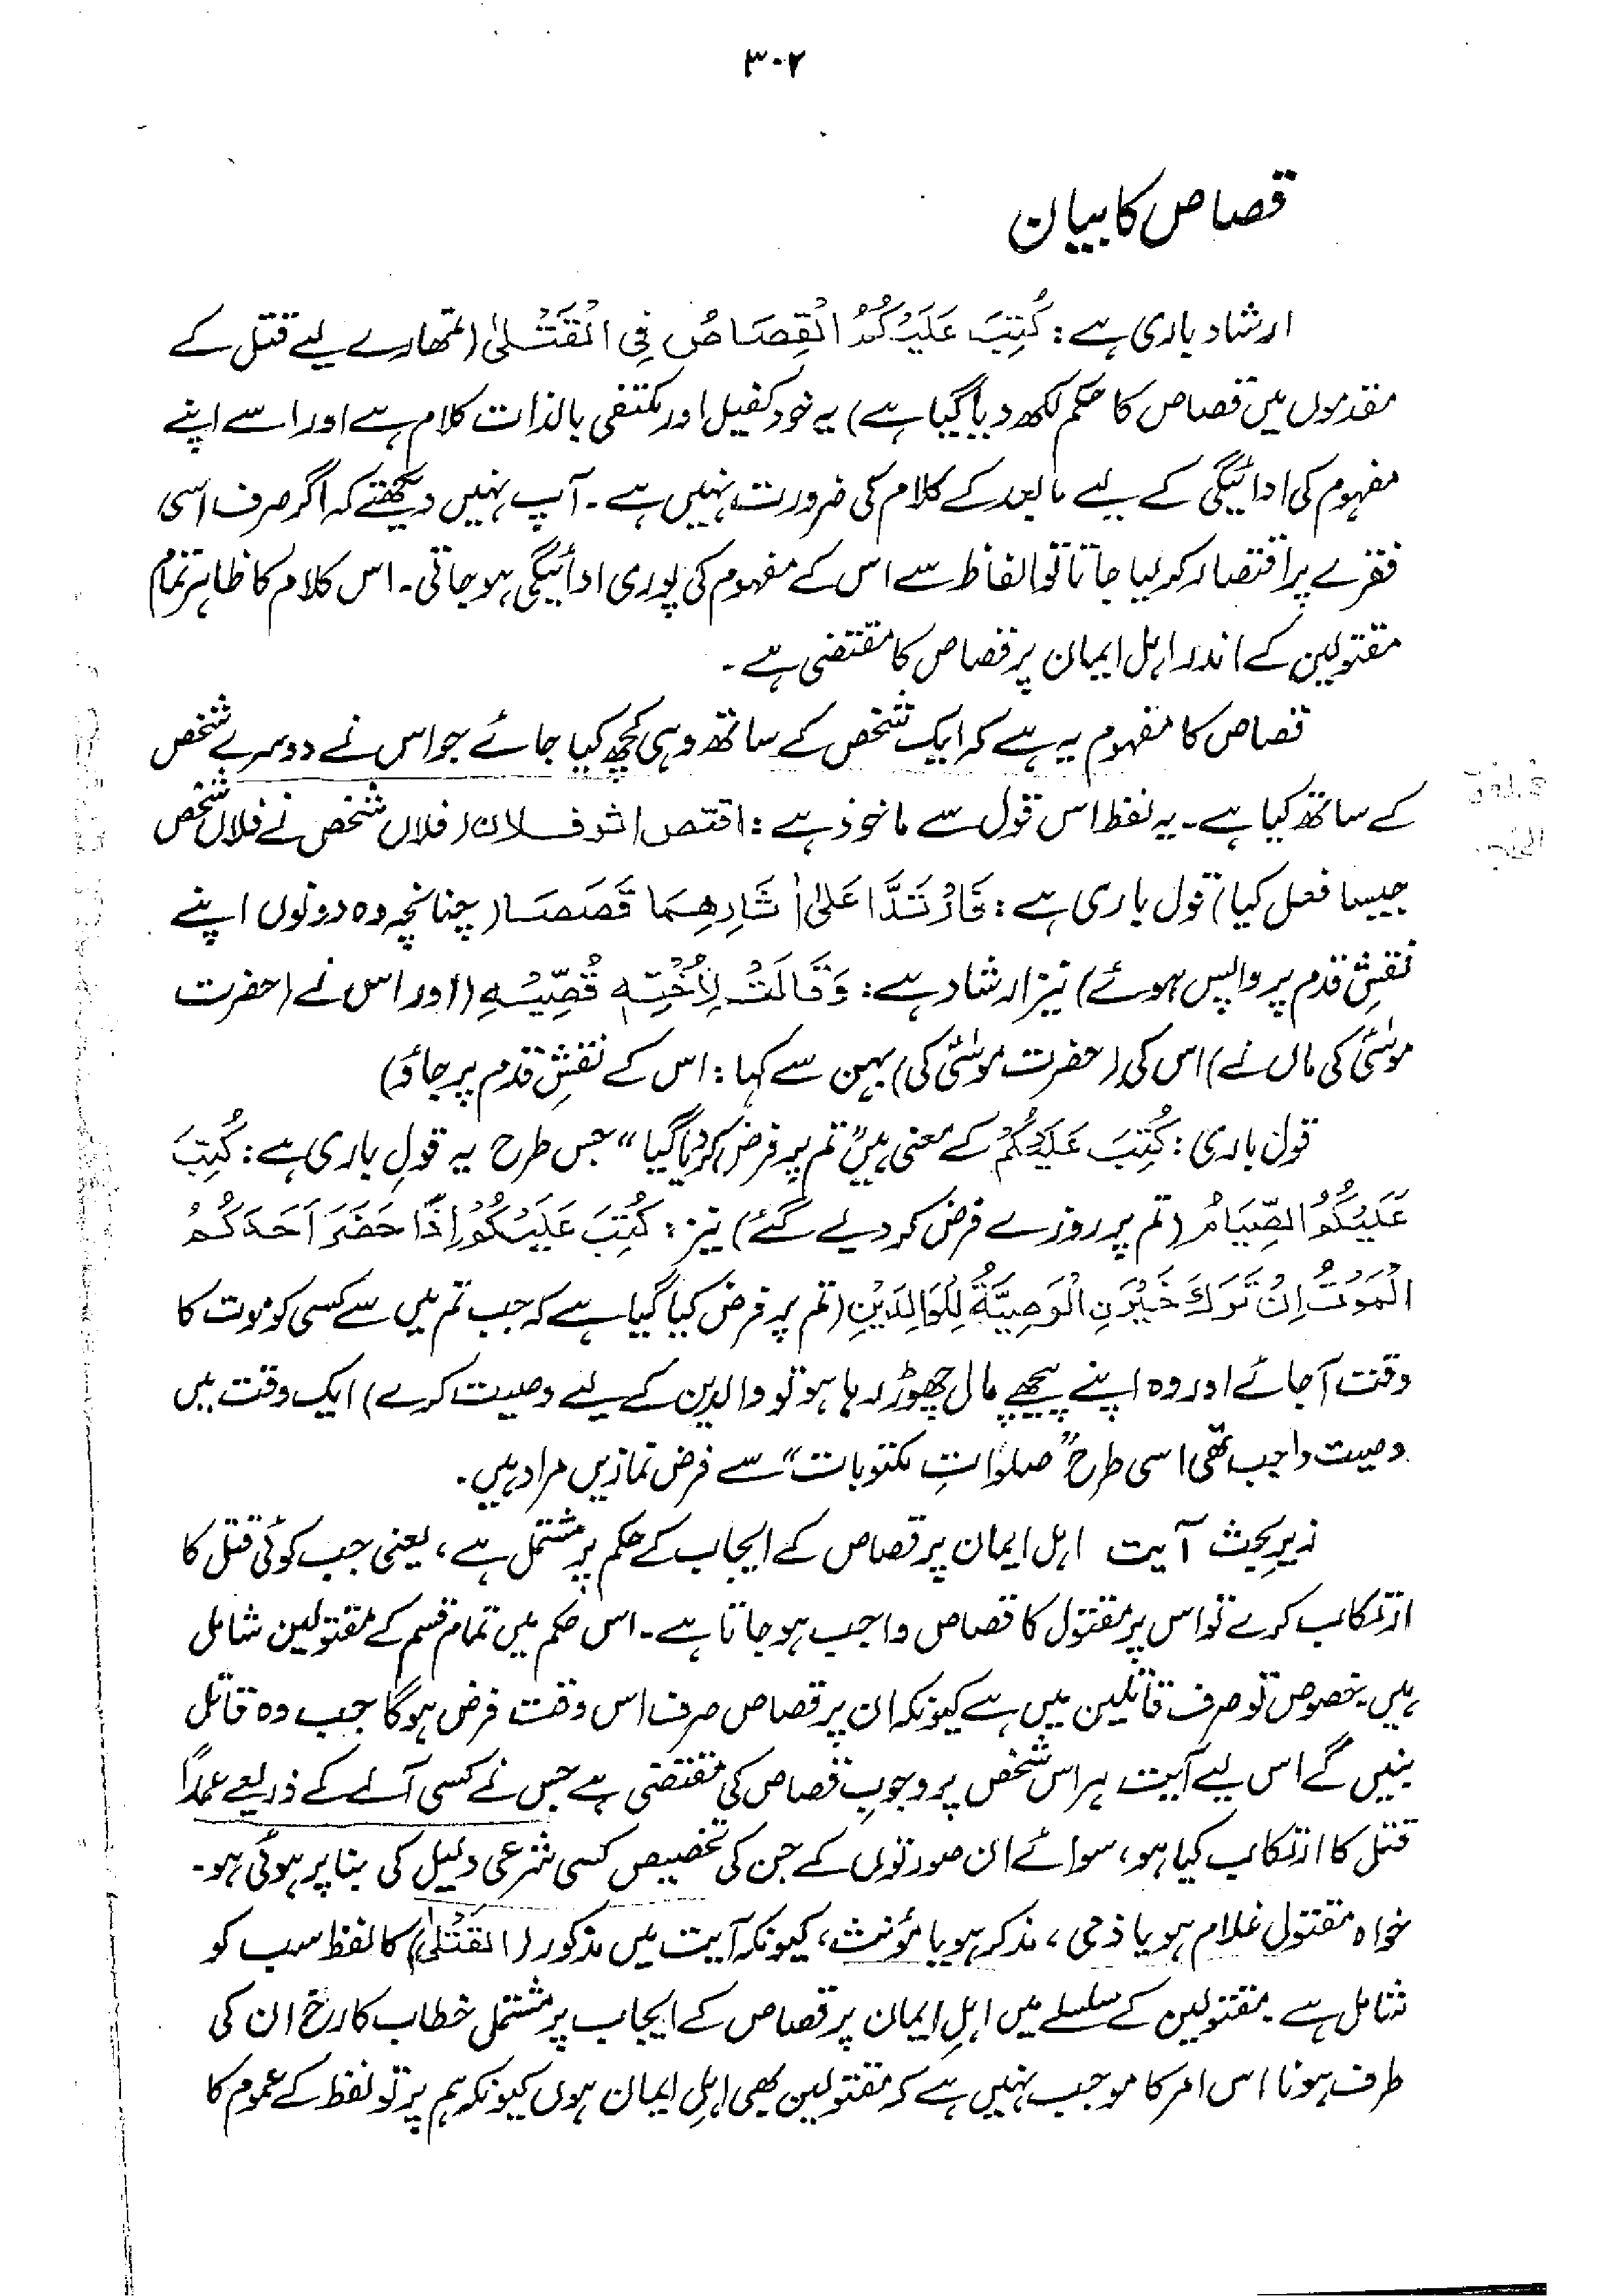 ۳۰۲
قصاص کا بیان
ارشاد باری ہے: كُتِبَ عَلَيْكُمُ الْقِصَاصُ فِي الْقَتْلٰى (تمھارے لیے قتل کے
مقدموں میں قصاص کا حکم لکھ دیا گیا ہے) یہ خود کفیل اور مکتفی بالذات کلام ہے اور اسے اپنے
مفہوم کی ادائیگی کے لیے مابعد کے کلام کی ضرورت نہیں ہے۔ آپ نہیں دیکھتے کہ اگر صرف اسی
فقرے پر اقتصار کر لیا جاتا تو الفاظ سے اس کے مفہوم کی پوری ادائیگی ہو جاتی۔ اس کلام کا ظاہر تمام
مقتولین کے اندر اہل ایمان پر قصاص کا مقتضی ہے۔
قصاص کا مفہوم یہ ہے کہ ایک شخص کے ساتھ وہی کچھ کیا جائے جو اس نے دوسرے شخص
کے ساتھ کیا ہے۔ یہ لفظ اس قول سے ماخوذ ہے: اقتص اثر فلان (فلاں شخص نے فلاں شخص
جیسا فعل کیا) قول باری ہے: فَارْتَدَّا عَلٰى اٰثَارِهِمَا قَصَصًا (چنانچہ وہ دونوں اپنے
نقشِ قدم پر واپس ہوئے) نیز ارشاد ہے: وَقَالَتْ لِاُخْتِهٖ قُصِّيْهِ (اور اس نے (حضرت
موسٰیؑ کی ماں نے) اس کی (حضرت موسٰیؑ کی) بہن سے کہا: اس کے نقشِ قدم پر جاؤ)
قول باری: كُتِبَ عَلَيْكُمْ کے معنی ہیں "تم پر فرض کر دیا گیا" جس طرح یہ قولِ باری ہے: كُتِبَ
عَلَيْكُمُ الصِّيَامُ (تم پر روزے فرض کر دیے گئے) نیز: كُتِبَ عَلَيْكُمْ اِذَا حَضَرَ اَحَدَكُمُ
الْمَوْتُ اِنْ تَرَكَ خَيْرَنِ الْوَصِيَّةُ لِلْوَالِدَيْنِ (تم پر فرض کیا گیا ہے کہ جب تم میں سے کسی کو موت کا
وقت آ جائے اور وہ اپنے پیچھے مال چھوڑ رہا ہو تو والدین کے لیے وصیت کرے) ایک وقت میں
وصیت واجب تھی اسی طرح "صلوٰاتِ مکتوبات" سے فرض نمازیں مراد ہیں۔
زیرِ بحث آیت اہل ایمان پر قصاص کے ایجاب کے حکم پر مشتمل ہے، یعنی جب کوئی قتل کا
ارتکاب کرے تو اس پر مقتول کا قصاص واجب ہو جاتا ہے۔ اس حکم میں تمام قسم کے مقتولین شامل
ہیں۔ خصوص تو صرف قاتلین میں ہے کیونکہ ان پر قصاص صرف اس وقت فرض ہوگا جب وہ قاتل
بنیں گے اس لیے آیت ہر اس شخص پر وجوبِ قصاص کی مقتضی ہے جس نے کسی آلے کے ذریعے عمداً
قتل کا ارتکاب کیا ہو، سوائے ان صورتوں کے جن کی تخصیص کسی شرعی دلیل کی بنا پر ہوئی ہو۔
خواہ مقتول غلام ہو یا ذمی، مذکر ہو یا مؤنث، کیونکہ آیت میں مذکور (الْقَتْلٰى) کا لفظ سب کو
شامل ہے۔ مقتولین کے سلسلے میں اہلِ ایمان پر قصاص کے ایجاب پر مشتمل خطاب کا رخ ان کی
طرف ہونا اس امر کا موجب نہیں ہے کہ مقتولین بھی اہلِ ایمان ہوں کیونکہ ہم پر تو لفظ کے عموم کا